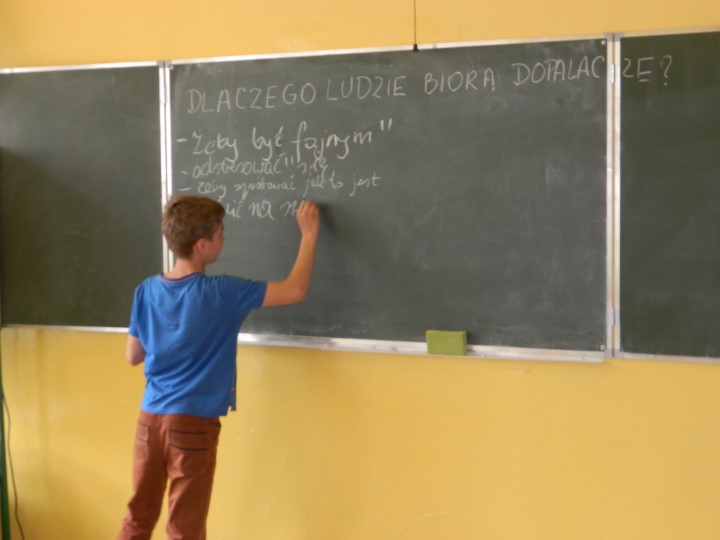 DLACZEGO LUDZIE BIORĄ DOPALACZE?
- Żeby być fajnym"
- odstresować" się
- żeby spróbować jak to jest
na